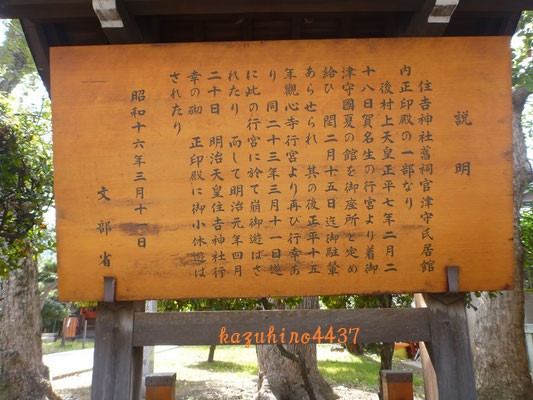 説明
住吉神社舊祠官津守氏居館
内正印殿の一部なり
後村上天皇正平七年二月二
十八日賀名生の行宮より着御
津守國夏の館を御座所と定め
給ひ 閏二月十五日迄御駐輦
あらせられ 其の後正平十五
年觀心寺行宮より再び行幸あ
り 同二十三年三月十一日遂
に此の行宮に於て崩御遊ばさ
れたり 而して明治元年四月
二十日 明治天皇住吉神社行
幸の砌 正印殿に御小休遊ば
されたり
昭和十六年三月十一日
文部省
kazuhino4437